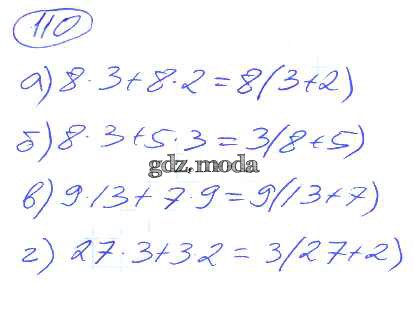 110
а) 8·3+8·2=8(3+2)
б) 8·3+5·3=3(8+5)
gdz.moda
в) 9·13+7·9=9(13+7)
г) 27·3+3·2=3(27+2)